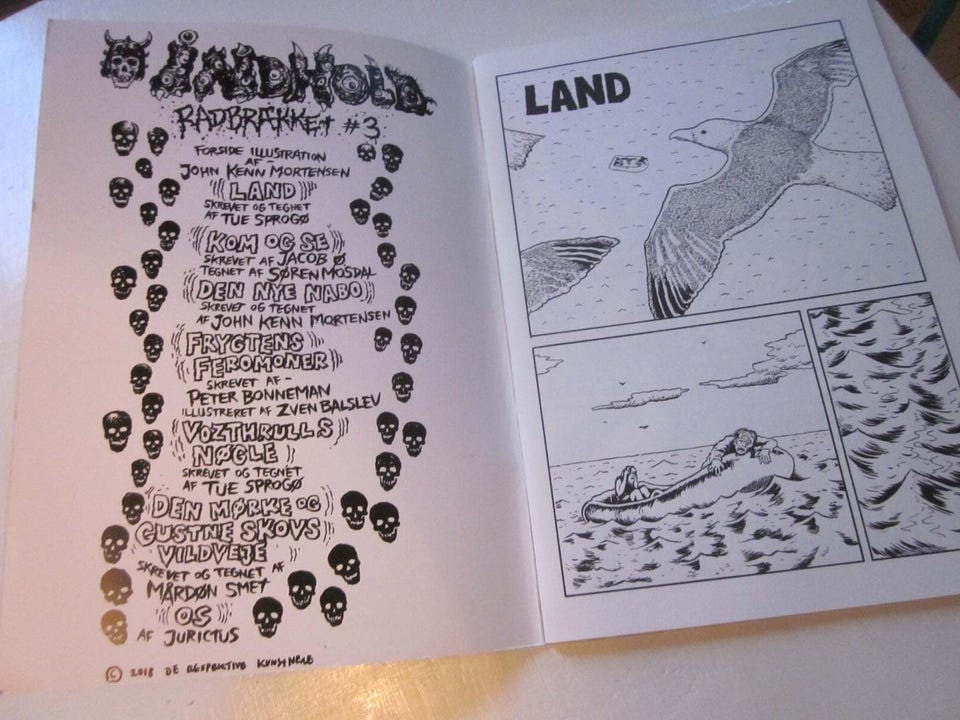 INDHOLD
RADBRÆKKET #3
FORSIDE ILLUSTRATION
AF
JOHN KENN MORTENSEN
LAND
SKREVET OG TEGNET
AF TUE SPROGØ
KOM OG SE
SKREVET AF JACOB Ø
TEGNET AF SØREN MOSDAL
DEN NYE NABO
SKREVET OG TEGNET
AF JOHN KENN MORTENSEN
FRYGTENS
FEROMONER
SKREVET AF -
PETER BONNEMAN
ILLUSTRERET AF ZVEN BALSLEV
VOZTHRULLS
NØGLE
SKREVET OG TEGNET
AF TUE SPROGØ
DEN MØRKE OG
GUSTNE SKOVS
VILDVEJE
SKREVET OG TEGNET AF
MÅRDØN SMET
OS
AF JURICTUS
© 2018 DE RESPEKTIVE KUNSTNERE
LAND